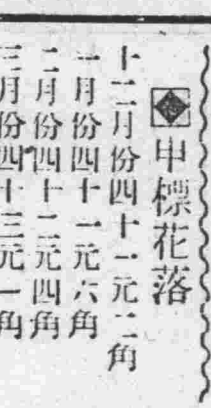 申標花落
十二月份四十一元二角
一月份四十一元六角
二月份四十二元四角
三月份四十三元一角